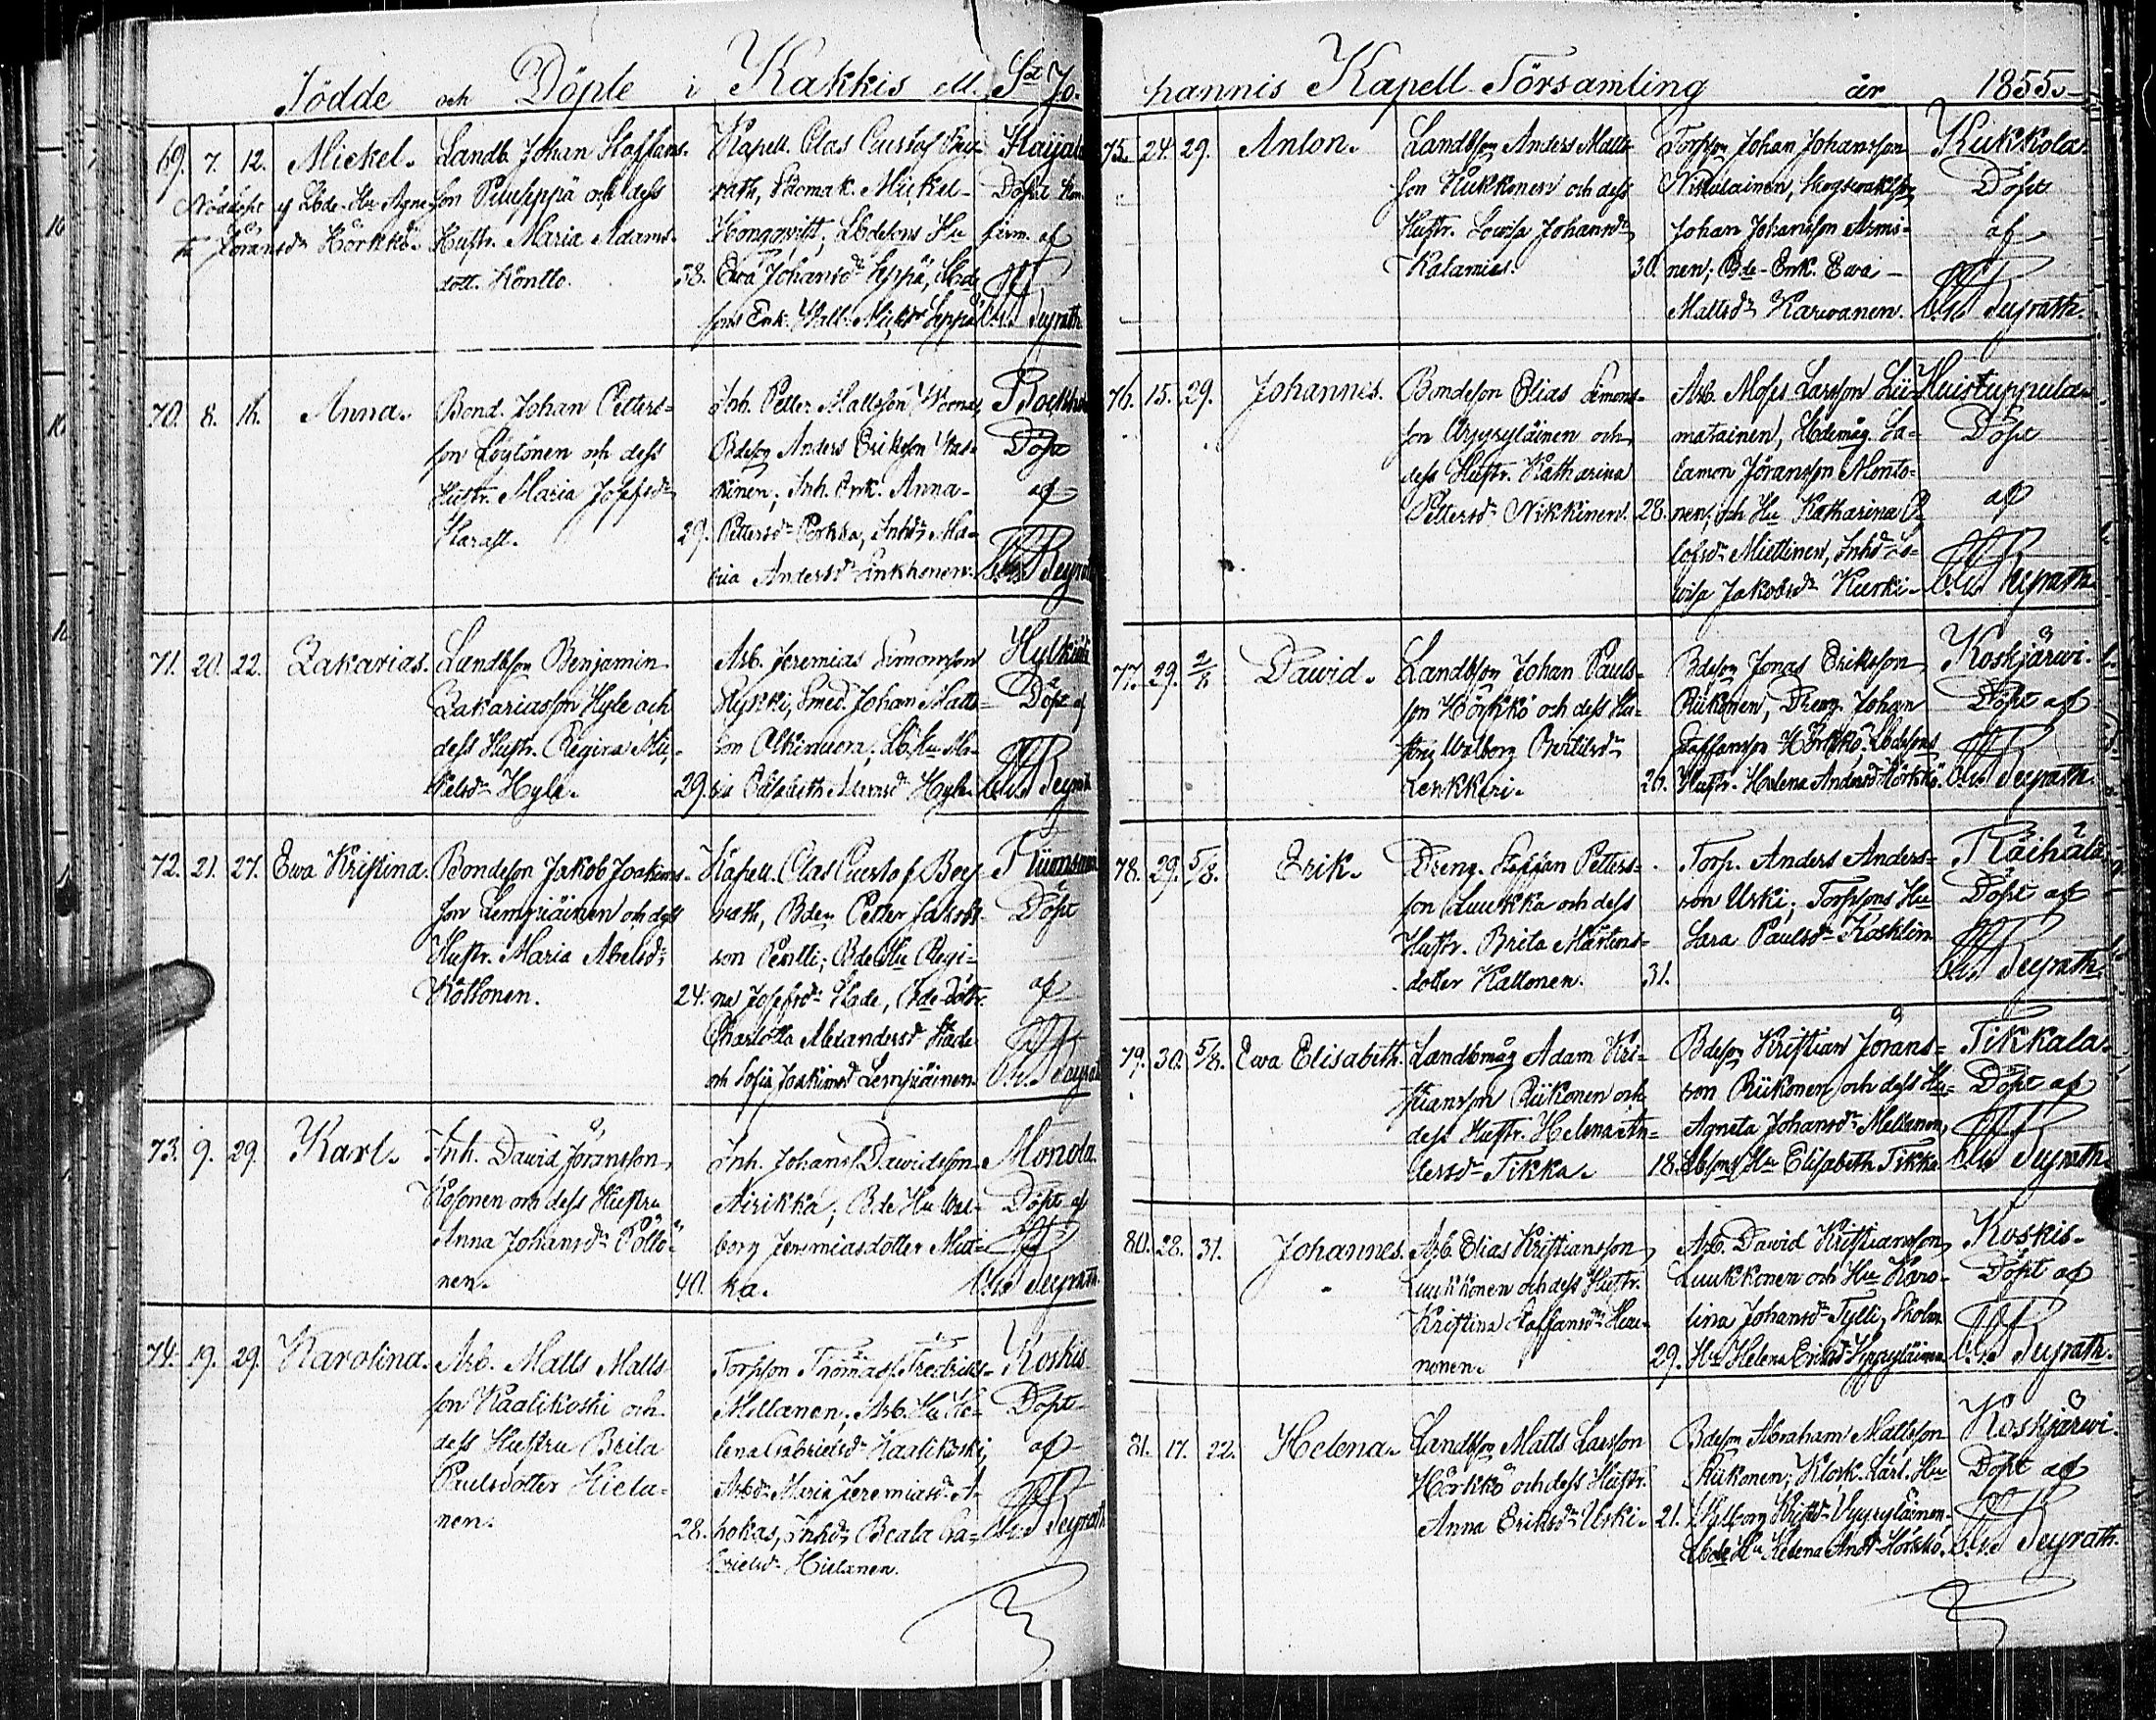 Födde och Döpte i Kakkis ell. St Jo-
hannis Kapell Församling år 1855.
69. 7. 12. Mickel. Landb. Johan Staffans-
son Seppä och dess
Hustr. Maria Adams-
dott. Kontto. 38.
Nöddöpt af Lbde Hu Agne-
ta Jöransdr Hörkkö.
Kapell. Clas Gustaf Bey-
rath, Mickel
Hongqwist, Lbdesons Hu
Ewa Johansdr Seppä, Lbde
sons Enk. Walb. Mickdr Seppä
Döpt
firm. af
C.G. Beyrath
70. 8. 16. Anna. Bond. Johan Petters-
son Löytönen och dess
Hustr. Maria Josefsdr
29.
Inh. Petter Mattsson Worna,
Bdeson Anders Eriksson
Inh. Enk. Anna
Pettersdr Porkka, Inhdr Ma-
ria Andersdr Inkhonen.
Döpt
af
C.G. Beyrath
71. 20. 22. Zakarias. Landbson Benjamin
Zakariasson Hyle och
dess Hustr. Regina Mic-
kelsdr Hyle. 29.
Arb. Jeremias Simonsson
Smed. Johan Matts-
son Olkinuora, Hu Ma-
ria Elisabeth Hyle.
Döpt af
C.G. Beyrath
72. 21. 27. Ewa Kristina. Bondeson Jakob Joakims-
son Lempiäinen och dess
Hustr. Maria Abelsdr
Köttönen. 24.
Kapell. Clas Gustaf Bey-
rath, Bden Petter Jakobs-
son Pentti; Bde Hu Regi-
na Josefsdr Stade, Bde Dottr.
Charlotta Alexandersdr Stade
och Sofia Joakimsdr Lempiäinen.
Döpt
af
C.G. Beyrath
73. 9. 29. Karl. Inh. Dawid Jöransson
Kosonen och dess Hustru
Anna Johansdr Pöllö-
nen. 40.
Inh. Johans Dawidsson
Nirikka; Bde Hu Wal-
borg Jeremiasdotter Mut-
ka.
Monola
Döpt af
C.G. Beyrath
74. 19. 29. Karolina. Arb. Matts Matts
son Kaalikoski och
dess Hustru Brita
Paulsdotter Hiela-
nen. 28.
Torpson Thomas Fredriks-
Mellanen; Arb. Hu He-
lena Gabrielsdr Kaalikoski,
Arbdr Maria Jeremiasdr A-
hokas, Inhdr Beata Ga-
brielsdr Hielanen.
Koskis
Döpt
af
C.G. Beyrath
75. 24. 29. Anton. Landbson Anders Matts-
son Kukkonen och dess
Hustr. Lowisa Johansdr
Kalamies. 30.
Torpson Johan Johansson
Nikulainen,
Johan Johansson Armi-
nen; Bde Enk. Ewa
Mattsdr Karwanen.
Kukkola.
Döpt
af
C.G. Beyrath.
76. 15. 29. Johannes. Bondeson Elias Simons-
son Wyyryläinen och
dess Hustr. Katharina
Pettersdr Nikkinen. 28.
Arb. Moses Larsson Lii-
matainen, Lbdemåg Sa-
lamon Jöransson Monto-
nen, och Hu Katharina
Miettinen, Inhdr Lo-
wisa Jakobsdr Kurki
Huistuppula.
Döpt
af
C.G. Beyrath
77. 29. 2/8 Dawid. Landbson Johan Pauls-
son Hörkkö och dess Hu-
stru Walborg Bertilsdr
Lenkkeri. 26.
Bdeson Jonas Eriksson
Riikonen, Dreng. Johan
Staffansson Hörkkö, Lbdesons
Hustr. Helena Andersdr Hörkkö.
Koskjärwi.
Döpt af
C.G. Beyrath.
78. 29. 5/8. Erik. Dreng. Staffan Petters-
son Luukka och dess
Hustr. Brita Mårtens-
dotter Kattonen. 31.
Torp. Anders Anders-
son Uski; Torpsons Hu
Sara Paulsdr Kosklin
Räihälä.
Döpt af
C.G. Beyrath.
79. 30. 5/8. Ewa Elisabeth. Landbmåg Adam Kri-
stiansson Riikonen och
dess Hustr. Helena An-
dersdr Tikka. 18.
Bdeson Kristian Jörans-
son Riikonen och dess Hu-
Agneta Johansdr Mellanen,
Lbsons Hu Elisabeth Tikka
Tikkala.
Döpt af
C.G. Beyrath.
80. 28. 31. Johannes. Arb. Elias Kristiansson
Luukkonen och dess Hustr.
Kristina Staffansdr Heu-
nonen. 29.
Arb. Dawid Kristiansson
Luukkonen och Hu Karo-
lina Johansdr Tylli,
Hu Helena Eriksdr
Koskis.
Döpt af
C.G. Beyrath.
81. 17. 22. Helena. Landbson Matts Larsson
Hörkkö och dess Hustr.
Anna Eriksdr Uski. 21.
Bdeson Abraham Mattsson
Riikonen; Klock. Karl. Hu
Walborg Kristdr Wyyryläinen.
Lbde Hu Helena Andr Hörkkö.
Koskjärwi.
Döpt af
C.G. Beyrath.